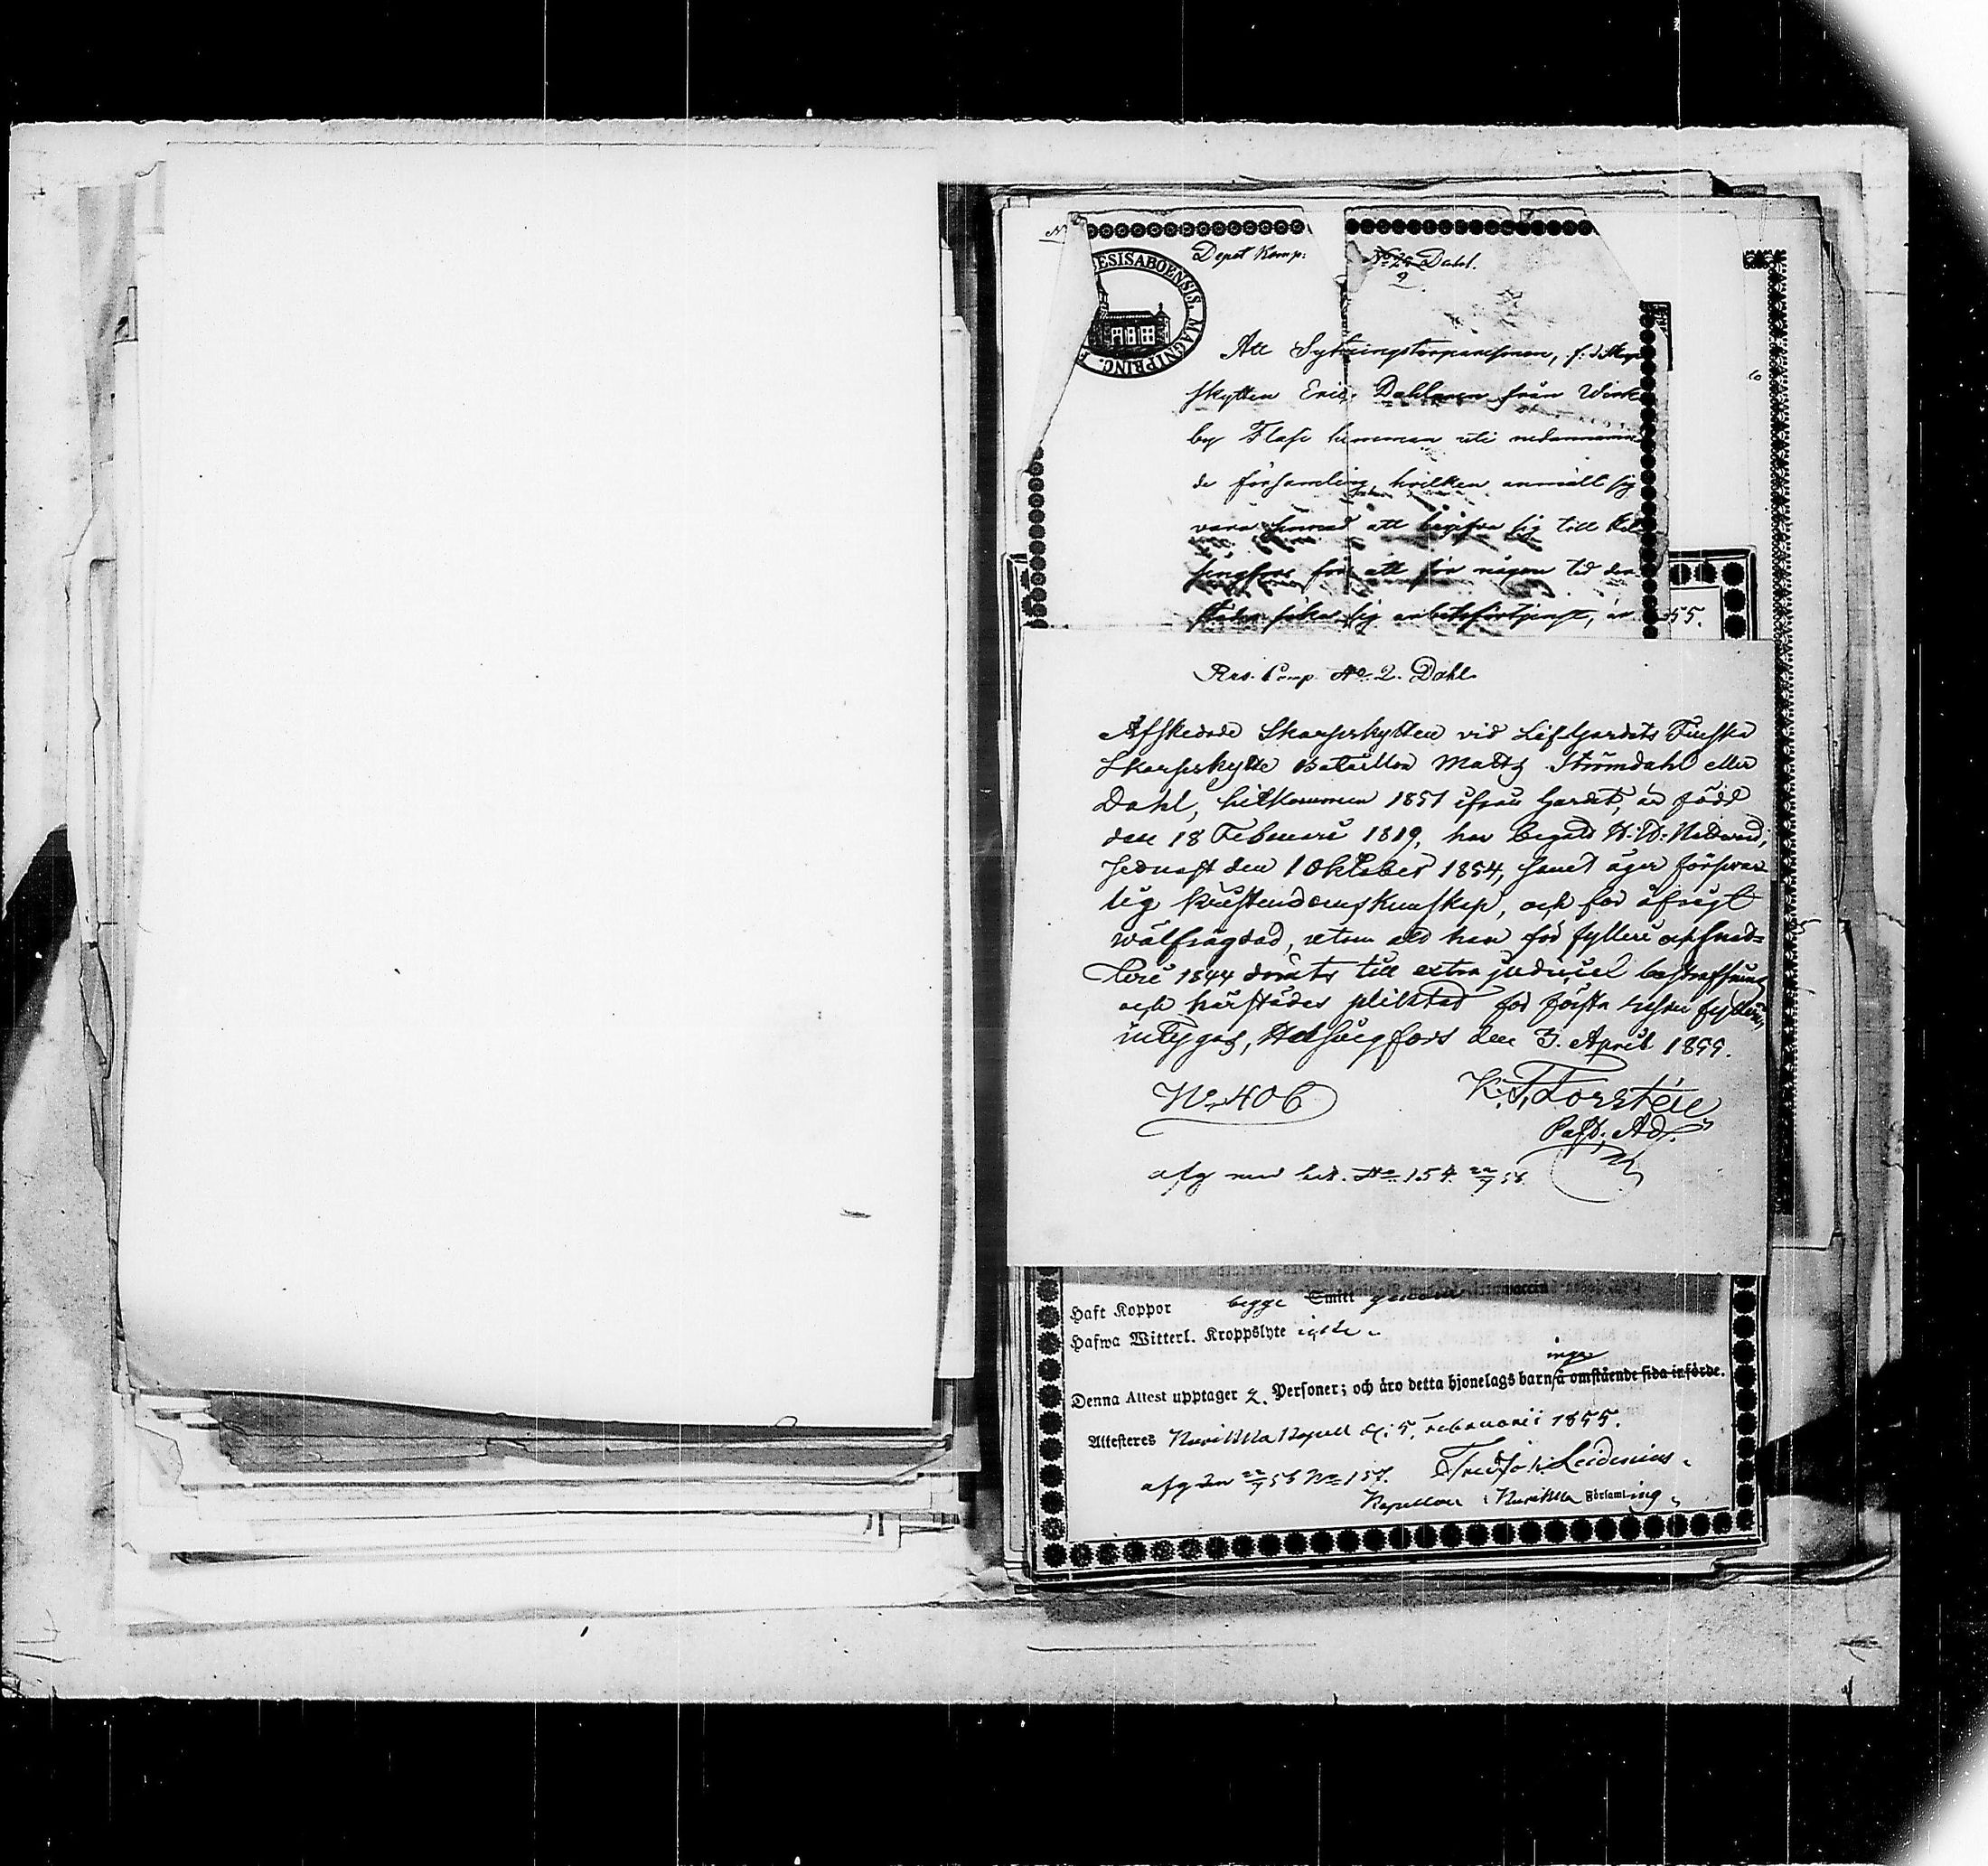 Depôt Komp:
No 29 Dahl.
9
ESISABOENSIS. MAGNIPRINC. F
Att Sytningstorparesonen, f: d Skarp
skytten Eric Dahlman från Wirk
by Flasi hemman uti nedannämn
de församling, hvilken anmält sig
vara sinnad att begifva sig till Hel
singfors för att för någon tid der
städes söka sig arbetsförtjenst, är
55.
Res. Comp. No 2. Dahl.
Afskedade Skarpskytten vid LifGardets Finska
Skarpskytte Bataillon Matts Strömdahl eller
Dahl, hitkommen 1851 ifrån Gardet, är född
den 18 Februari 1819, har begått H: H: Nattvard,
sednast den 1 Oktober 1854, samt äger försvar
lig kristendomskunskap, och för öfrigt
wälfrägdad, utom att han för fylleri och snat=
teri 1844 dömts till extra judiciel bestraffning
och härstädes pliktat för första resan fylleri,
intygas, Helsingfors den 3. April 1855.
No 406
K. T. Forstén
Past. Adj.
afg med bet. No 154 22/9 56.
Haft Koppor begge
Hafwa Witterl. Kroppslyte icke.
inga
Denna Attest upptager 2. Personer; och äro detta hjonelags barn å omstående sida införde.
Attesteres Kapell d: 5. Februarii 1855.
afg den 22/9 56 No 154. Fred Joh. Leidenius.
Kapellan i Församling.